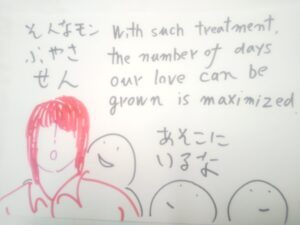 そんなモン
ふやさ
せん
With such treatment,
the number of days
our love can be
grown is maximized.
あそこに
いるな